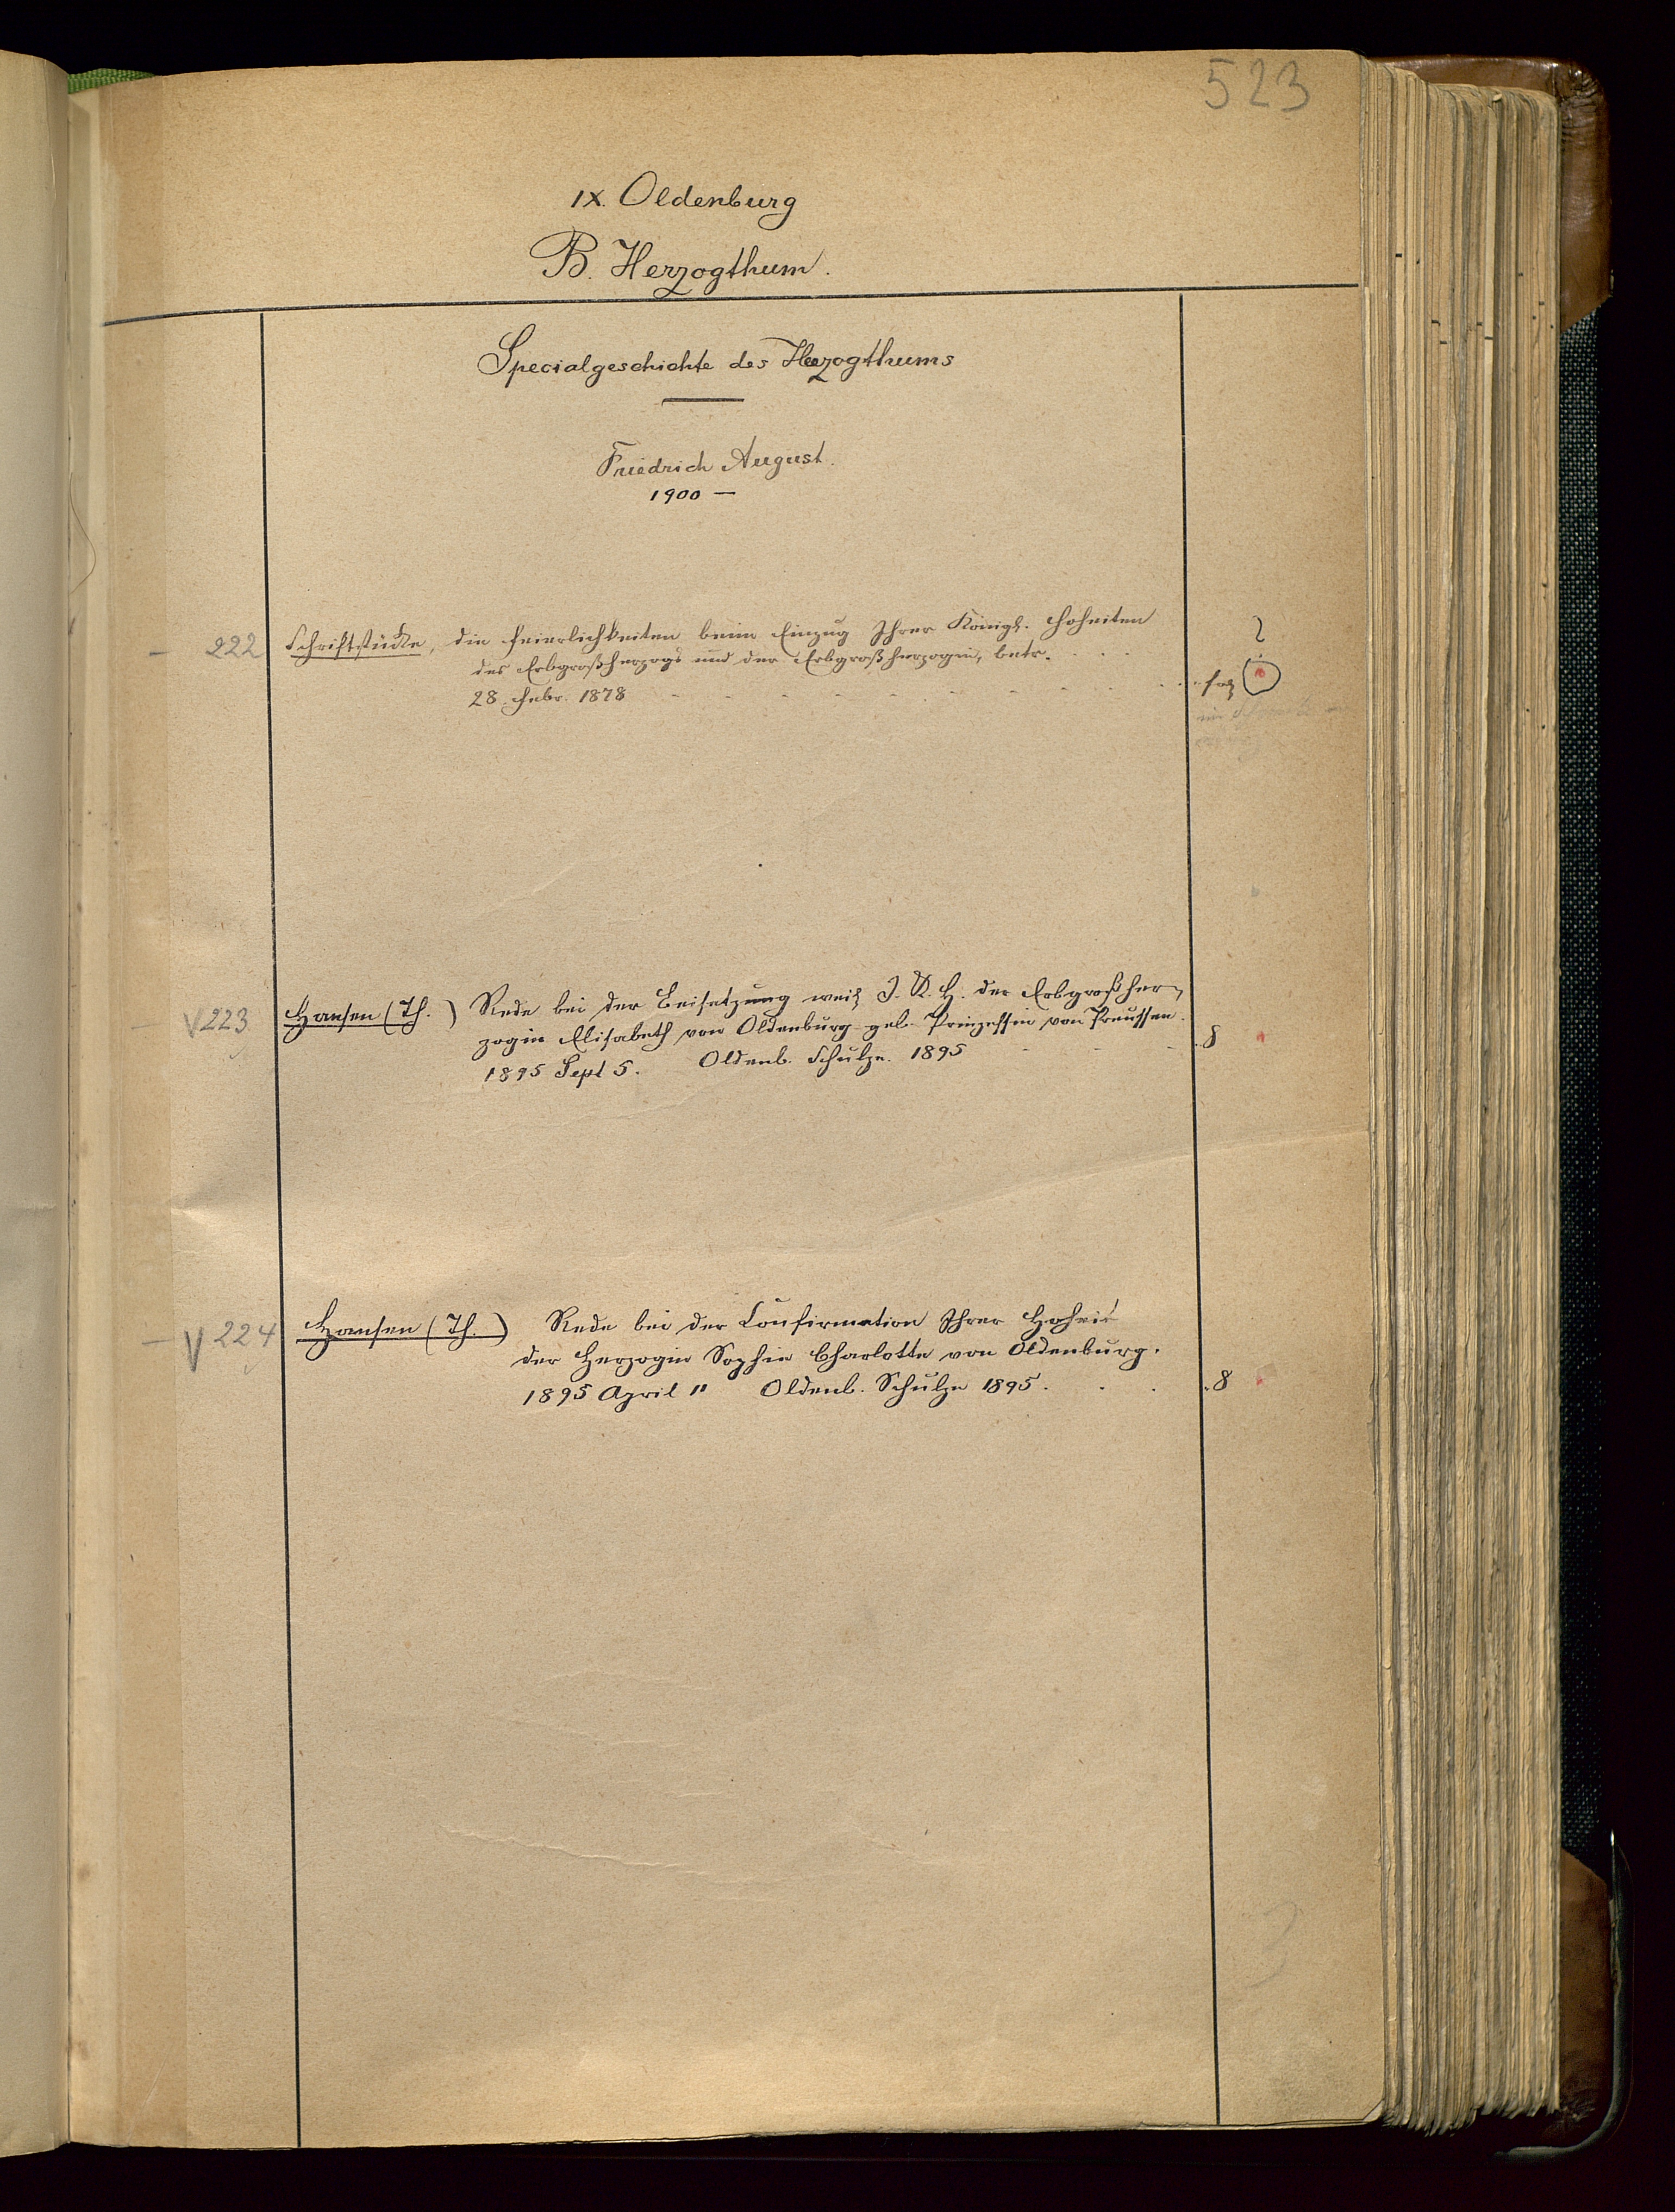 523
IX. Oldenburg
B. Herzogthum.
Specialgeschichte des Herzogthums
Friedrich August.
1900 —
— 222 Schriftstücke, die Feierlichkeiten beim Einzug Ihrer Königl. Hoheiten ?
des Erbgroßherzogs und der Erbgroßherzogin, betr. . . .
28. Febr. 1878 - - - - - - - - - . . fol
— V 223 Hansen (Th.) Rede bei der Beisetzung weil I. K. H. der Erbgroßher-
zogin Elisabeth von Oldenburg geb. Prinzessin von Preussen.
1895 Sept 5. Oldenb. Schulze. 1895 - - - . 8
— V 224 Hansen (Th.) Rede bei der Confirmation Ihrer Hoheit
der Herzogin Sophie Charlotte von Oldenburg.
1895 April 11 Oldenb. Schulze 1895 . . . . 8